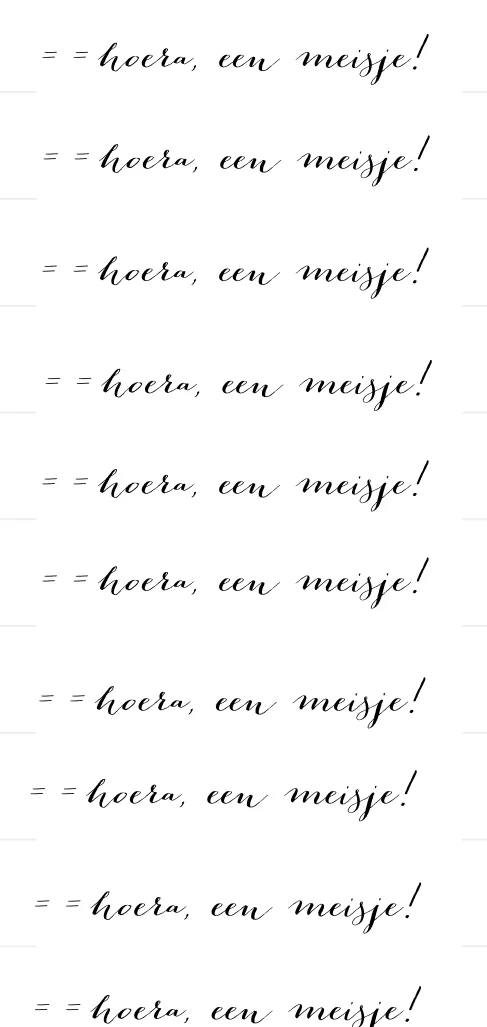 = = hoera, een meisje!
= = hoera, een meisje!
= = hoera, een meisje!
= = hoera, een meisje!
= = hoera, een meisje!
= = hoera, een meisje!
= = hoera, een meisje!
= = hoera, een meisje!
= = hoera, een meisje!
= = hoera, een meisje!